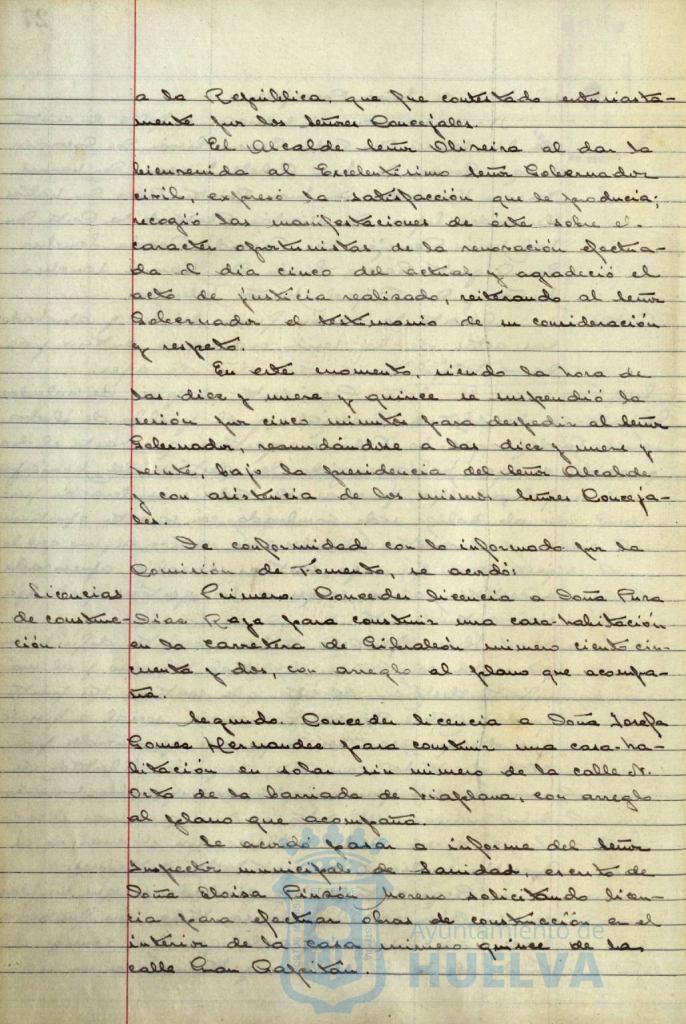 a la República, que fue contestado entusiasta-
mente por los Señores Concejales.
El Alcalde Señor Oliveira al dar la
bienvenida al Excelentísimo Señor Gobernador
civil, expresó la satisfacción que le producía;
recogió las manifestaciones de éste sobre el
caracter oportunistas de la renovación efectua-
da el dia cinco del actual y agradeció el
acto de justicia realizado, reiterando al Señor
Gobernador el testimonio de su consideración
y respeto.
En este momento, siendo la hora de
las diez y nueve y quince se suspendió la
sesión por cinco minutos para despedir al Señor
Gobernador, reanudándose a las diez y nueve y
veinte, bajo la presidencia del Señor Alcalde
y con asistencia de los mismos Señores Conceja-
les.
De conformidad con lo informado por la
Comisión de Fomento, se acordó:
Licencias
de construc-
ción.
Primero. Conceder licencia a Doña Pura
Diaz Raja para construir una casa-habitación
en la carretera de Gibraleón número ciento cin-
cuenta y dos, con arreglo al plano que acompa-
ña.
Segundo. Conceder licencia a Doña Josefa
Gomez Hernandez para construir una casa-ha-
bitación en solar sin número de la calle
de la barriada de Viaplana, con arreglo
al plano que acompaña.
Se acordó pasar a informe del Señor
Inspector municipal de Sanidad, escrito de
Doña Eloisa Pinzón Moreno solicitando licen-
cia para efectuar obras de construcción en el
interior de la casa número quince de la
calle Gran Capitán.
Ayuntamiento de
HUELVA